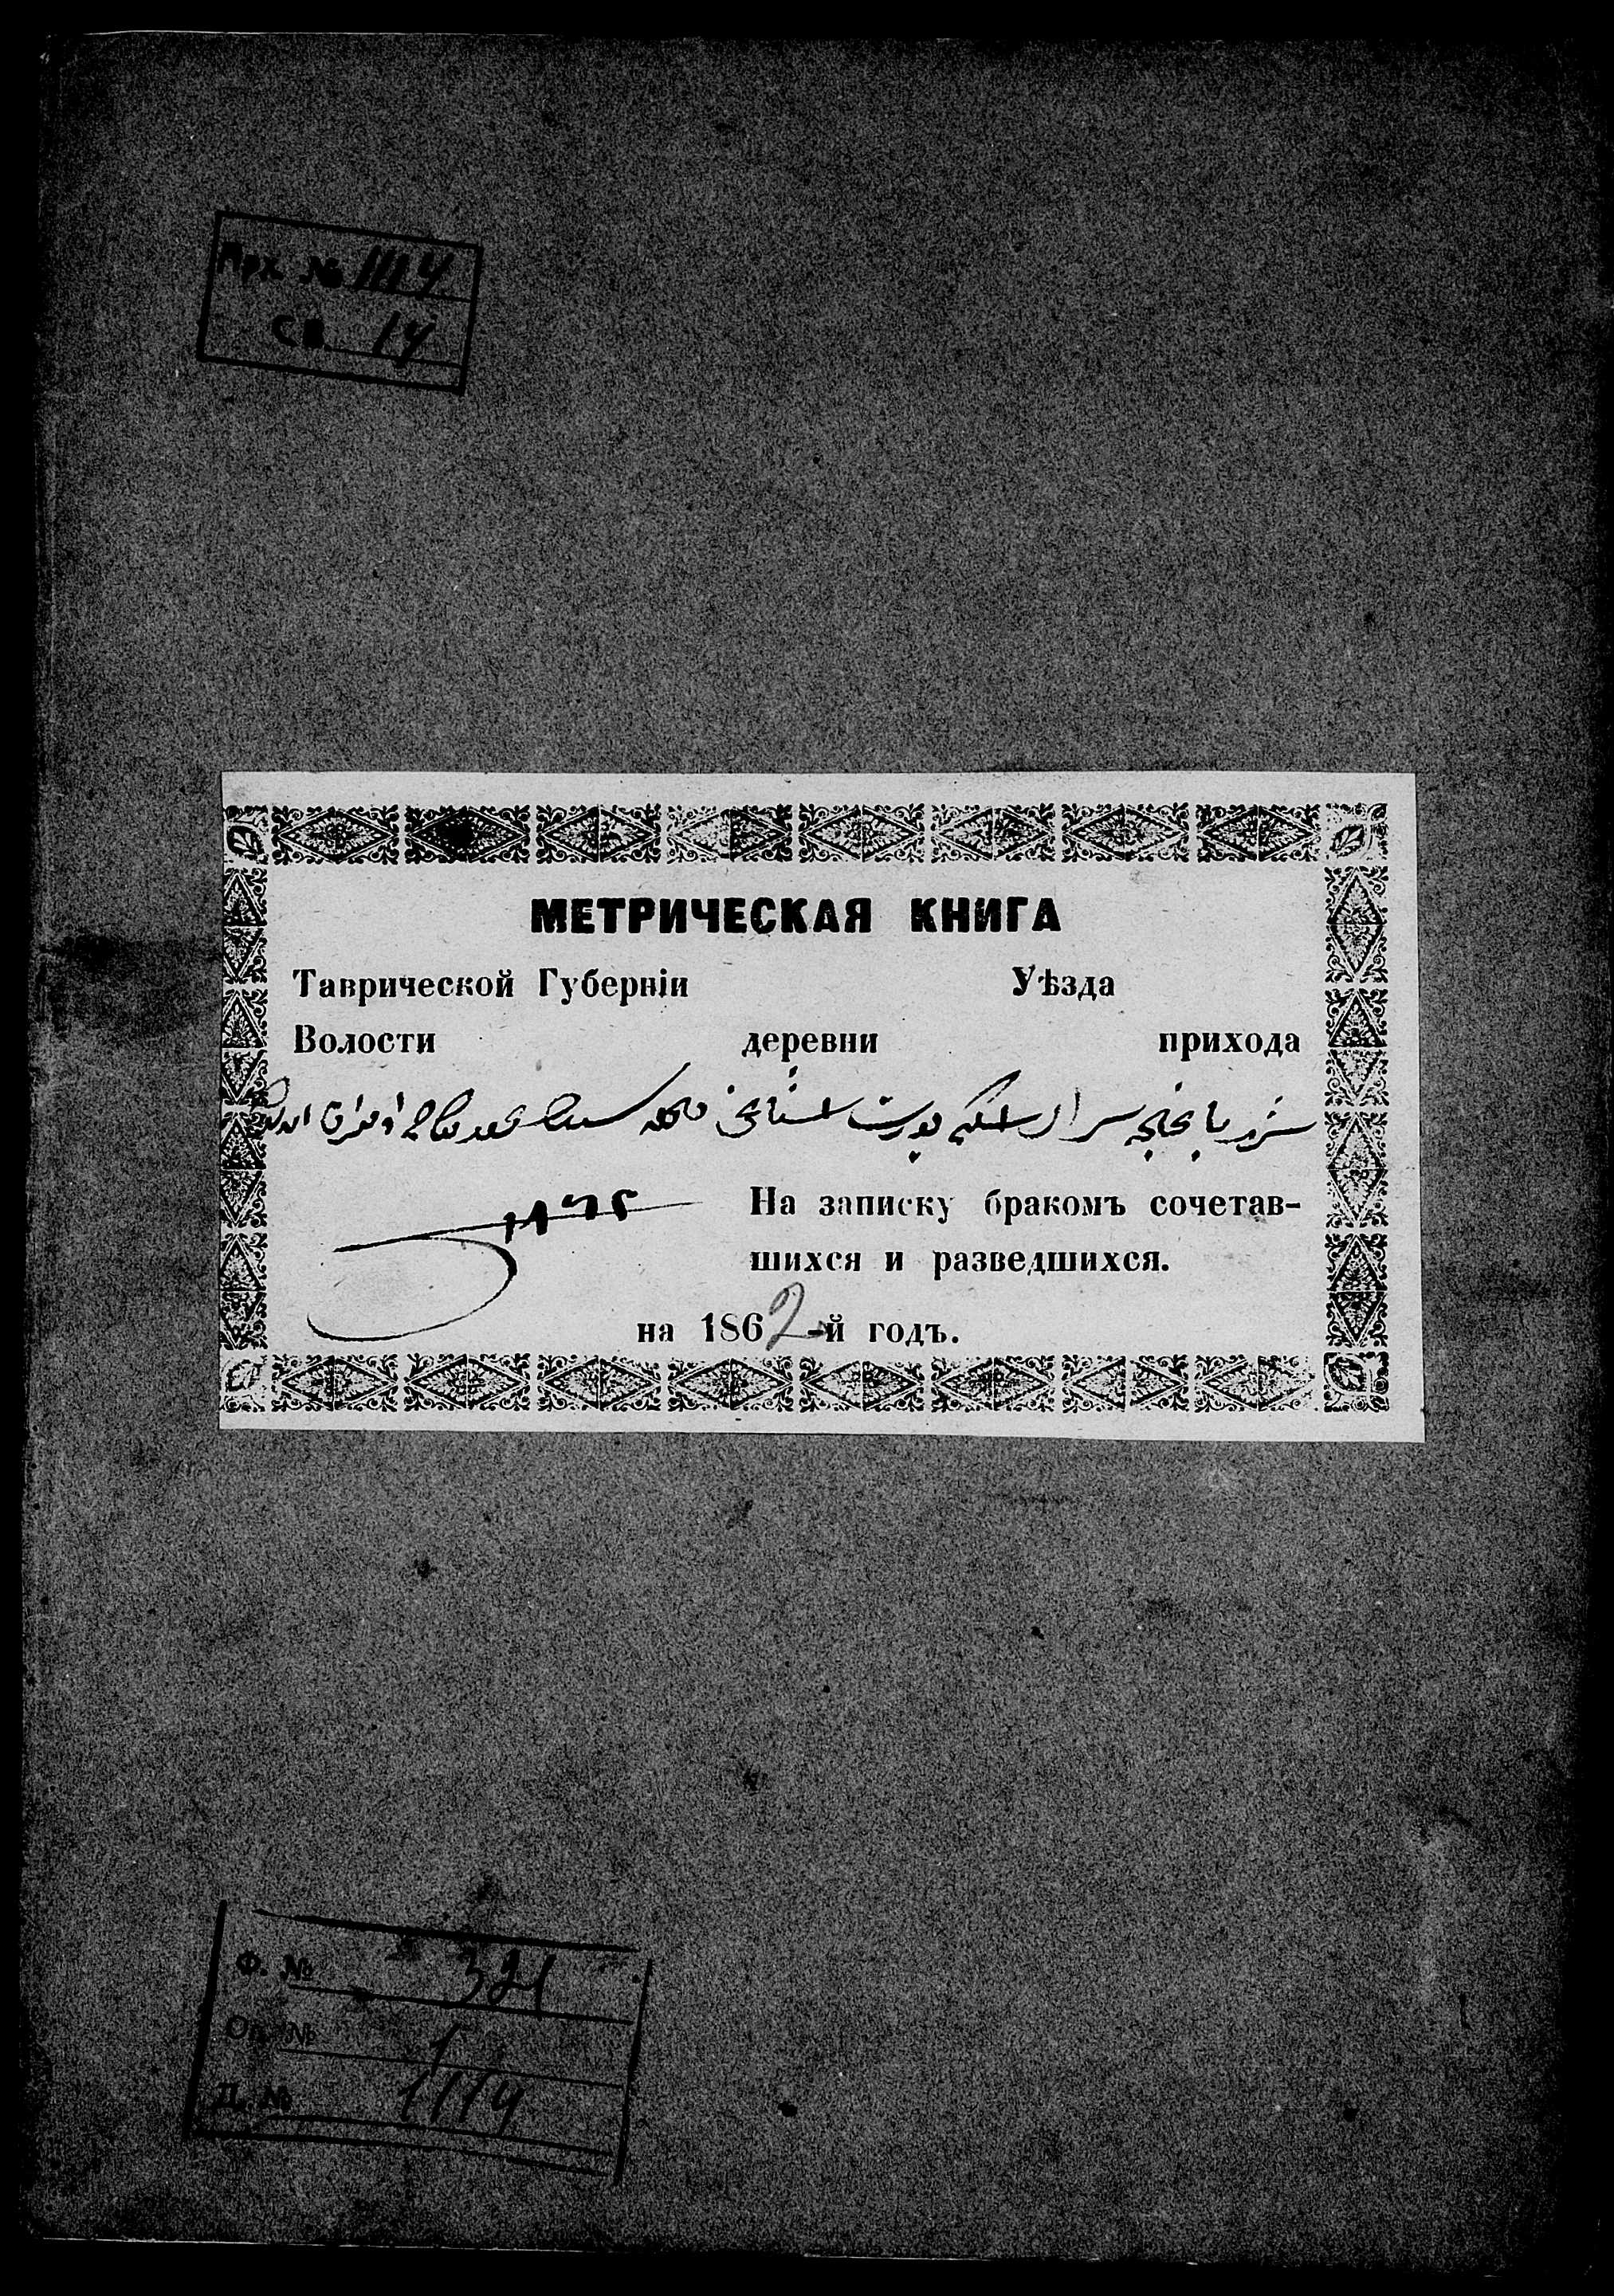 Арх. № 1114
Св. 14
МЕТРИЧЕСКАЯ КНИГА
Таврической Губерніи Уѣзда
Волости деревни прихода
باغچه سراى اسكى يورت
На записку бракомъ сочетав-
шихся и разведшихся.
на 1862-й годъ.
Ф. № 321
Оп. № 1
Д. № 1114